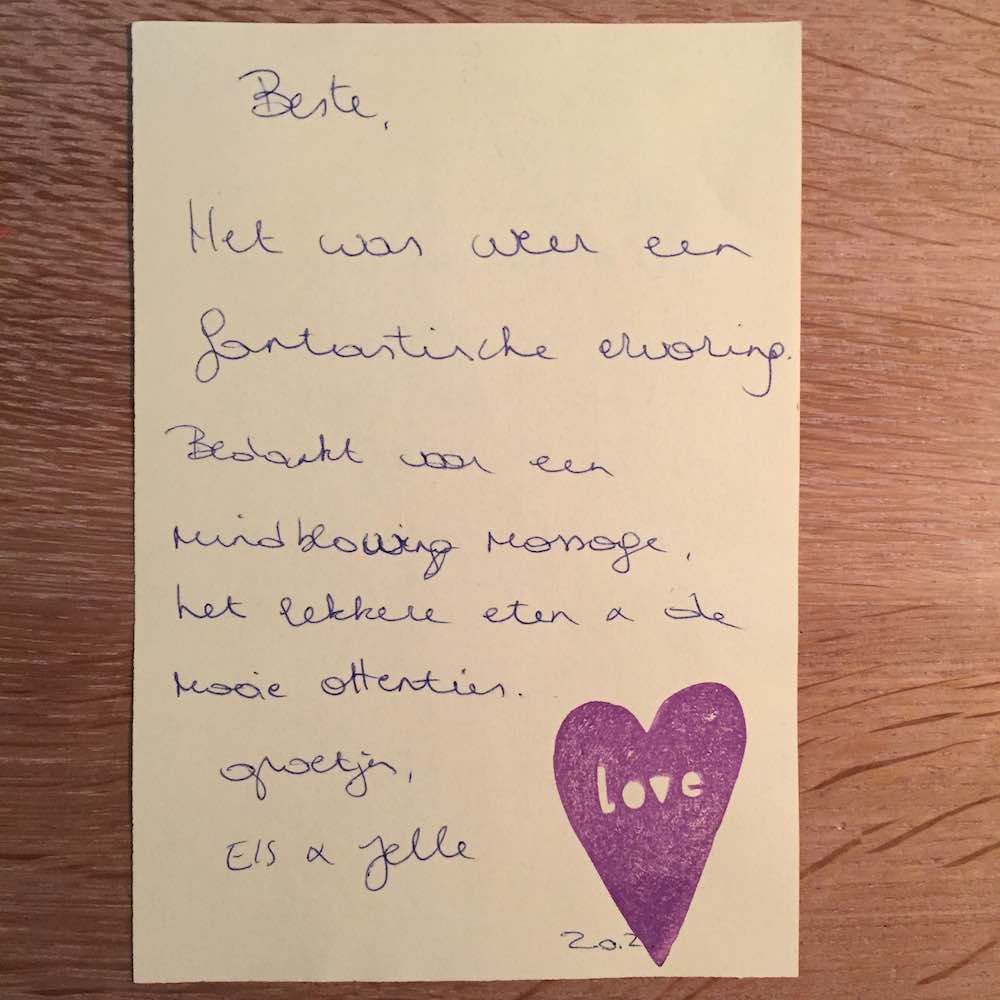 Beste,
Het was weer een
fantastische ervaring.
Bedankt voor een
mindblowing massage,
het lekkere eten & de
mooie attenties.
groetjes,
Els & Jelle
love